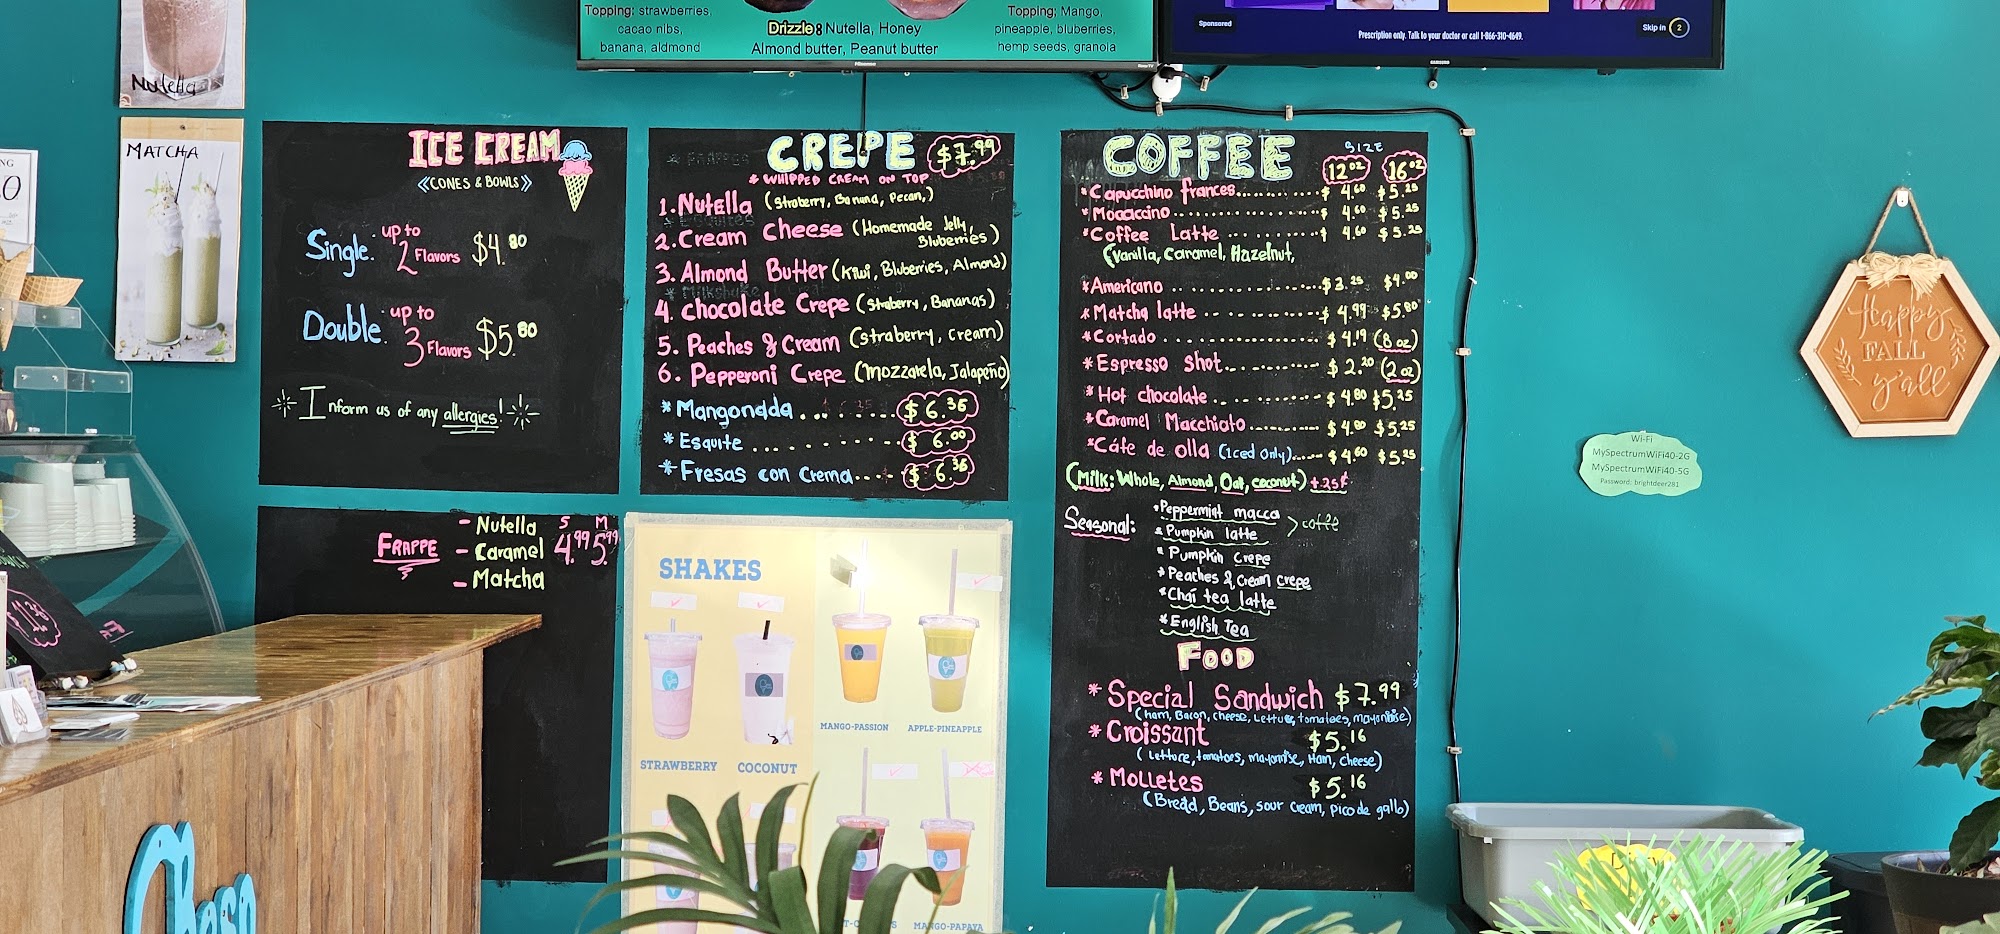 Topping: strawberries,
cacao nibs,
banana, aldmond
Drizzle8 Nutella, Honey
Almond butter, Peanut butter
Topping: Mango,
pineapple, bluberries,
hemp seeds, granola
Hisense
Roku TV
Sponsored
Prescription only. Talk to your doctor or call 1-866-310-4649.
Skip in 2
SAMSUNG
Nutella
MATCHA
ICE CREAM
«CONES & BOWLS»
Single: up to 2 Flavors $4.80
Double: up to 3 Flavors $5.80
Inform us of any allergies!
FRAPPE
S M
- Nutella
- Caramel 4.99 5.99
- Matcha
CREPE $7.99
* WHIPPED CREAM ON TOP
1. Nutella (Straberry, Banana, Pecan,)
2. Cream Cheese (Homemade Jelly, Bluberries)
3. Almond Butter (Kiwi, Bluberries, Almond)
4. Chocolate Crepe (Straberry, Bananas)
5. Peaches & Cream (straberry, cream)
6. Pepperoni Crepe (Mozzarela, Jalapeño)
* Mangonada $6.35
* Esquite $6.00
* Fresas con Crema $6.35
SHAKES
STRAWBERRY
COCONUT
MANGO-PASSION
APPLE-PINEAPPLE
MANGO-PAPAYA
COFFEE
SIZE
12oz 16oz
*Capucchino frances $4.60 $5.25
*Mocaccino $4.60 $5.25
*Coffee Latte $4.60 $5.25
(Vanilla, Caramel, Hazelnut,
*Americano $3.25 $4.00
*Matcha latte $4.99 $5.80
*Cortado $4.19 (8oz)
*Espresso Shot $2.20 (2oz)
*Hot chocolate $4.80 $5.25
*Caramel Macchiato $4.60 $5.25
*Cáfe de olla (Iced Only) $4.60 $5.25
(Milk: Whole, Almond, Oat, coconut) +.25¢
Seasonal:
*Peppermint macca
> coffee
* Pumpkin latte
* Pumpkin crepe
* Peaches & Cream crepe
*Chai tea latte
* English Tea
FOOD
* Special Sandwich $7.99
(Ham, Bacon, cheese, Lettuce, tomatoes, mayonnise)
* Croissant $5.16
(Lettuce, tomatoes, mayonnise, Ham, cheese)
* Molletes $5.16
(Bread, Beans, sour cream, pico de gallo)
Happy
FALL
y'all
Wi-Fi
MySpectrumWiFi40-2G
MySpectrumWiFi40-5G
Password: brightdeer281